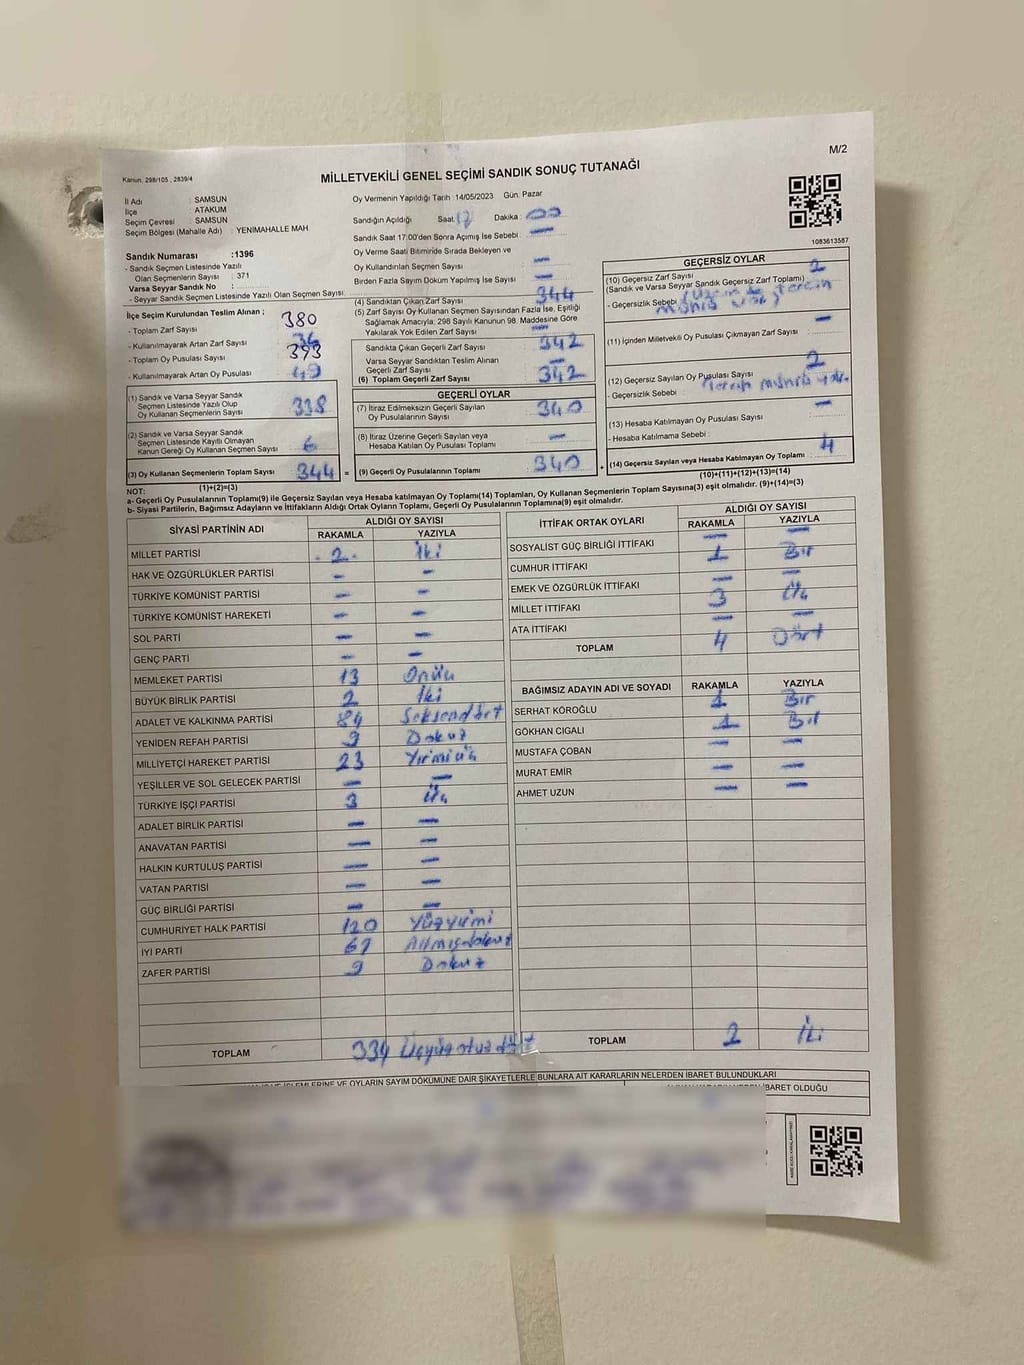 M/2
Kanun. 298/105 , 2839/4
MİLLETVEKİLİ GENEL SEÇİMİ SANDIK SONUÇ TUTANAĞI
İl Adı : SAMSUN
İlçe : ATAKUM
Seçim Çevresi : SAMSUN
Seçim Bölgesi (Mahalle Adı) : YENİMAHALLE MAH
Sandık Numarası :1396
- Sandık Seçmen Listesinde Yazılı
Olan Seçmenlerin Sayısı : 371
Varsa Seyyar Sandık No :
- Seyyar Sandık Seçmen Listesinde Yazılı Olan Seçmen Sayısı
Oy Vermenin Yapıldığı Tarih :14/05/2023 Gün: Pazar
Sandığın Açıldığı Saat 17 Dakika : 00
Sandık Saat 17:00'den Sonra Açımış İse Sebebi : —
Oy Verme Saati Bitiminde Sırada Bekleyen ve
Oy Kullandırılan Seçmen Sayısı —
Birden Fazla Sayım Döküm Yapılmış İse Sayısı —
1083613587
İlçe Seçim Kurulundan Teslim Alınan ;
- Toplam Zarf Sayısı 380
- Kullanılmayarak Artan Zarf Sayısı 36
- Toplam Oy Pusulası Sayısı 393
- Kullanılmayarak Artan Oy Pusulası 49
(1) Sandık ve Varsa Seyyar Sandık
Seçmen Listesinde Yazılı Olup
Oy Kullanan Seçmenlerin Sayısı 338
(2) Sandık ve Varsa Seyyar Sandık
Seçmen Listesinde Kayıtlı Olmayan
Kanun Gereği Oy Kullanan Seçmen Sayısı 6
(3) Oy Kullanan Seçmenlerin Toplam Sayısı 344 =
(1)+(2)=(3)
(4) Sandıktan Çıkan Zarf Sayısı 344
(5) Zarf Sayısı Oy Kullanan Seçmen Sayısından Fazla İse, Eşitliği
Sağlamak Amacıyla, 298 Sayılı Kanunun 98. Maddesine Göre
Yakılarak Yok Edilen Zarf Sayısı —
Sandıkta Çıkan Geçerli Zarf Sayısı 342
Varsa Seyyar Sandıktan Teslim Alınan
Geçerli Zarf Sayısı —
(6) Toplam Geçerli Zarf Sayısı 342
GEÇERLİ OYLAR
(7) İtiraz Edilmeksizin Geçerli Sayılan
Oy Pusulalarının Sayısı 340
(8) İtiraz Üzerine Geçerli Sayılan veya
Hesaba Katılan Oy Pusulası Toplamı —
(9) Geçerli Oy Pusulalarının Toplamı 340 +
GEÇERSİZ OYLAR
(10) Geçersiz Zarf Sayısı 2
(Sandık ve Varsa Seyyar Sandık Geçersiz Zarf Toplamı) :
- Geçersizlik Sebebi : tercih
mührü
(11) İçinden Milletvekili Oy Pusulası Çıkmayan Zarf Sayısı —
(12) Geçersiz Sayılan Oy Pusulası Sayısı 2
- Geçersizlik Sebebi : Tercih mührü yok.
(13) Hesaba Katılmayan Oy Pusulası Sayısı —
- Hesaba Katılmama Sebebi :
(14) Geçersiz Sayılan veya Hesaba Katılmayan Oy Toplamı 4
(10)+(11)+(12)+(13)=(14)
NOT:
a- Geçerli Oy Pusulalarının Toplamı(9) ile Geçersiz Sayılan veya Hesaba katılmayan Oy Toplamı(14) Toplamları, Oy Kullanan Seçmenlerin Toplam Sayısına(3) eşit olmalıdır. (9)+(14)=(3)
b- Siyasi Partilerin, Bağımsız Adayların ve İttifakların Aldığı Ortak Oyların Toplamı, Geçerli Oy Pusulalarının Toplamına(9) eşit olmalıdır.
SİYASİ PARTİNİN ADI ALDIĞI OY SAYISI
RAKAMLA YAZIYLA
MİLLET PARTİSİ - 2 - İki
HAK VE ÖZGÜRLÜKLER PARTİSİ — —
TÜRKİYE KOMÜNİST PARTİSİ — —
TÜRKİYE KOMÜNİST HAREKETİ — —
SOL PARTİ — —
GENÇ PARTİ — —
MEMLEKET PARTİSİ 13 Onüç
BÜYÜK BİRLİK PARTİSİ 2 İki
ADALET VE KALKINMA PARTİSİ 84 Seksendört
YENİDEN REFAH PARTİSİ 9 Dokuz
MİLLİYETÇİ HAREKET PARTİSİ 23 Yirmiüç
YEŞİLLER VE SOL GELECEK PARTİSİ — —
TÜRKİYE İŞÇİ PARTİSİ 3 Üç
ADALET BİRLİK PARTİSİ — —
ANAVATAN PARTİSİ — —
HALKIN KURTULUŞ PARTİSİ — —
VATAN PARTİSİ — —
GÜÇ BİRLİĞİ PARTİSİ — —
CUMHURİYET HALK PARTİSİ 120 Yüzyirmi
İYİ PARTİ 69 Altmışdokuz
ZAFER PARTİSİ 9 Dokuz
TOPLAM 334 Üçyüzotuzdört
İTTİFAK ORTAK OYLARI ALDIĞI OY SAYISI
RAKAMLA YAZIYLA
SOSYALİST GÜÇ BİRLİĞİ İTTİFAKI — —
CUMHUR İTTİFAKI 1 Bir
EMEK VE ÖZGÜRLÜK İTTİFAKI — —
MİLLET İTTİFAKI 3 Üç
ATA İTTİFAKI — —
TOPLAM 4 Dört
BAĞIMSIZ ADAYIN ADI VE SOYADI RAKAMLA YAZIYLA
SERHAT KÖROĞLU 1 Bir
GÖKHAN CIGALI 1 Bir
MUSTAFA ÇOBAN — —
MURAT EMİR — —
AHMET UZUN — —
TOPLAM 2 İki
VE İŞLEMLERİNE VE OYLARIN SAYIM DÖKÜMÜNE DAİR ŞİKAYETLERLE BUNLARA AİT KARARLARIN NELERDEN İBARET BULUNDUKLARI
İBARET OLDUĞU